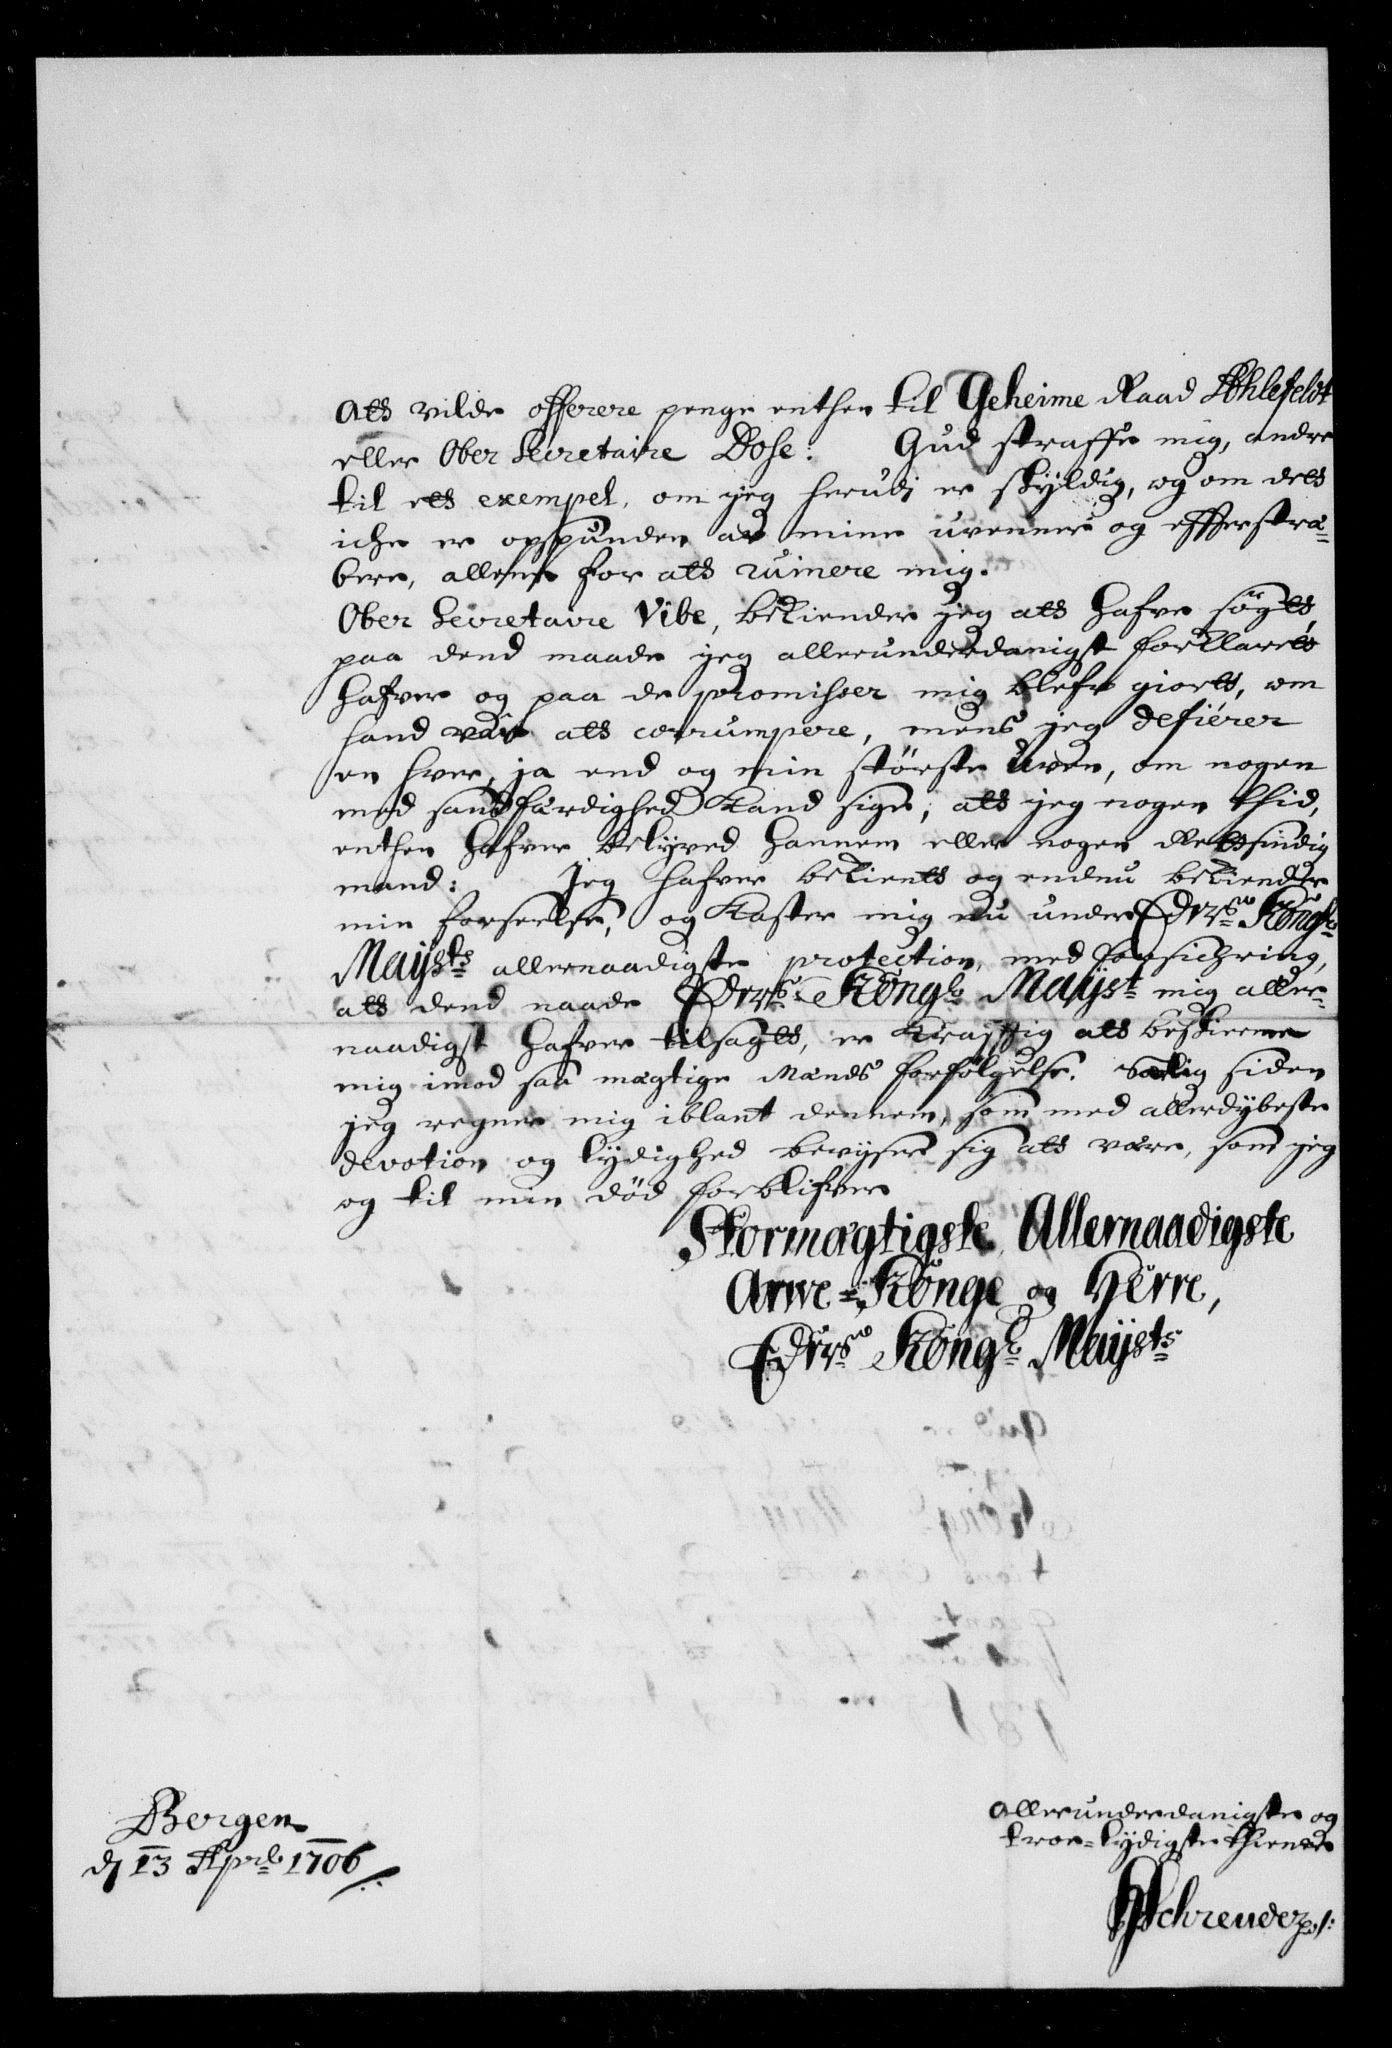 Att vilde offerere penge enthen til Geheime Raad Ahlefeldt
eller Ober Secretaire Dose: Gud straffe mig, andre
til ett exempel, om jeg herudj er skyldig, og om dett
iche er opspunden av mine uvenner og efferstræ=
bere, allene for att ruinere mig.
Ober Secretaire Vibe, bekiender jeg att hafve søgt,
paa dend maade jeg allerunderdanigst forklaret
hafver og paa de promisser mig blefv giort, om
hand var att corrumpere, mens jeg defiérer
en hver, ja end og min störste uven, om nogen
med sandfærdighed kand sige, att jeg nogen thid,
enthen hafver belyved hannem eller nogen Rettsindig
mand: Jeg hafver bekient og endnu bekiender
min forseelse, og kaster mig nu under Eders Kongl
Mayts allernaadigste protection, med forsichring,
att dend naade Eders Kongl Mayst mig aller=
naadigst hafver tilsagt, er kraftig att beskierme
mig imod saa mægtige Mænds forfølgelse. Særlig siden
jeg regner mig iblant dennem, som med allerdybeste
devotion og lydighed bevyser sig att være, som jeg
og til min död forblifver
Stormægtigste Allernaadigste
Arwe=Konge og Herre,
Eders Kongl Maysts
Allerunderdanigste og
troe=lydigste thienere
Bergen
d 13 Aprl 1706
Schreuder